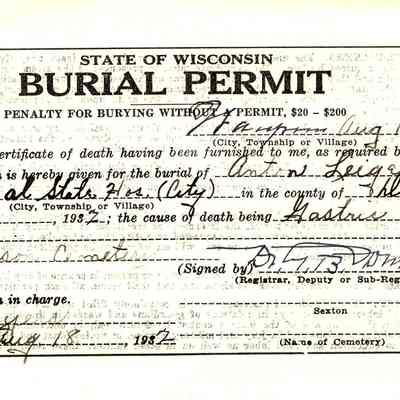 STATE OF WISCONSIN
BURIAL PERMIT
PENALTY FOR BURYING WITHOUT PERMIT, $20 – $200
Waupun Aug 1
(City, Township or Village)
certificate of death having been furnished to me, as required b
is hereby given for the burial of Anton
al State Hos (City) in the county of
(City, Township or Village)
, 1937; the cause of death being Gastric
son Cemetery
(Signed by)
(Registrar, Deputy or Sub-Reg
n in charge.
Sexton
Aug 18, 1937
(Name of Cemetery)